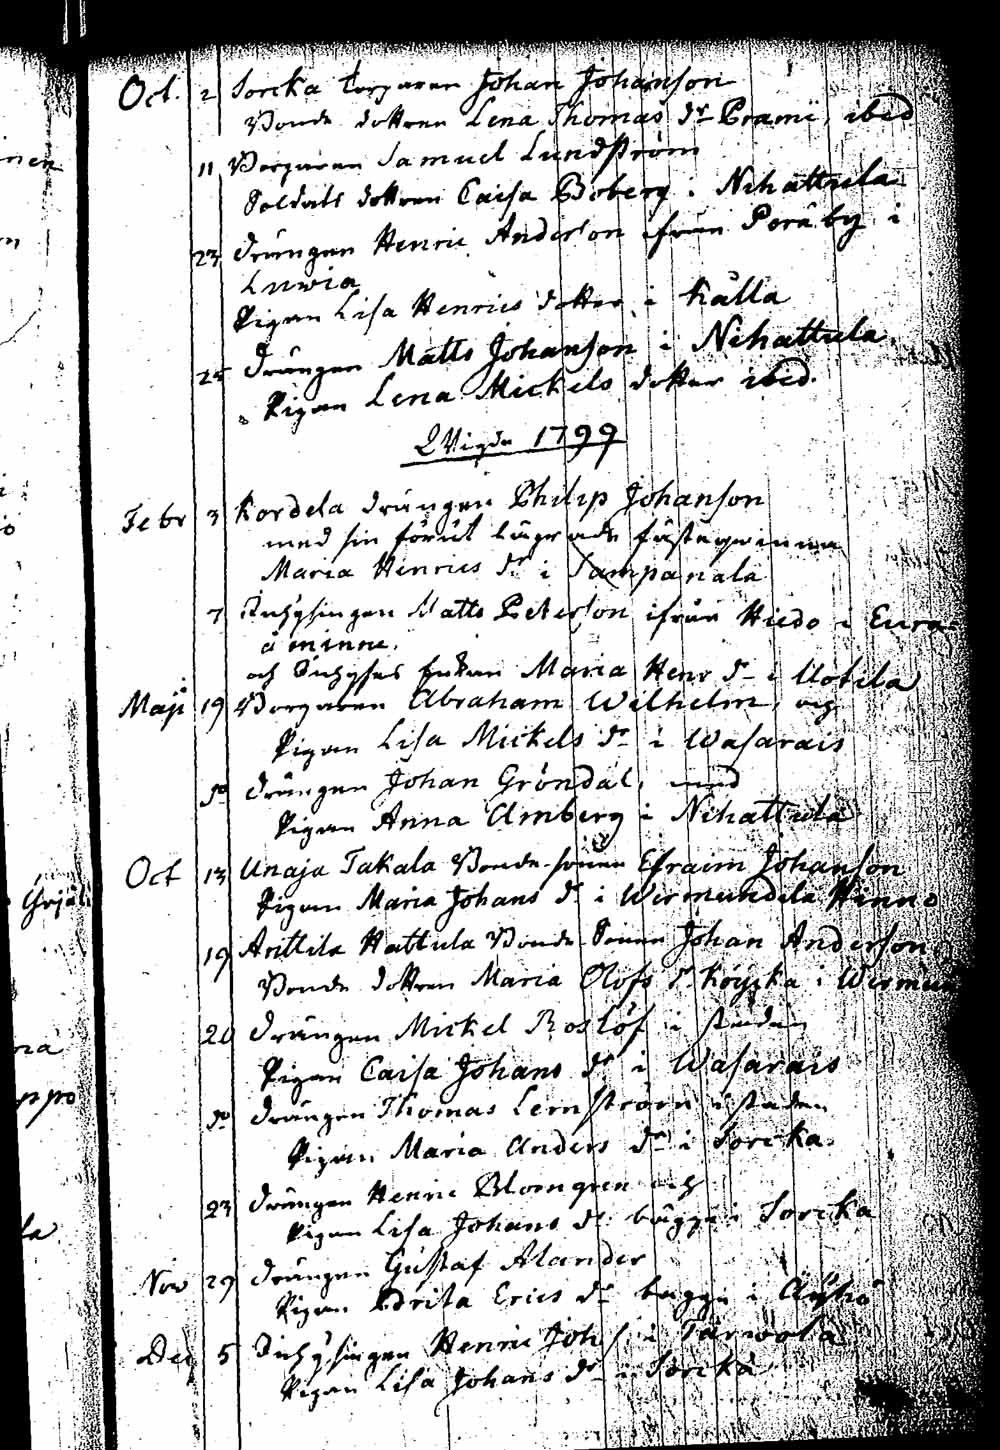 Oct. 2 Sorcka Torparen Johan Johanson
Bonde dottren Lena Thomas dr Prami, ibid
11 Borgaren Samuel Lundström
Soldats dottren Caisa Boberg i Nihattula
23 Drängen Henric Anderson ifrån Peräby i
Luwia
Pigan Lisa Henrics dotter i Källa
25 Drängen Matts Johanson i Nihattula
Pigan Lena Mickels dotter ibid.
Wigde 1799
Febr 3 Kordela drängen Philip Johanson
med sin förut lägrade fästeqwinna
Maria Henrics dr i Sampanala
7 Inhysingen Matts Peterson ifrån Hiedo i Eura-
åminne.
och Inhyses Enkan Maria Henr dr i Uotila
Maji 19 Borgaren Abraham Wilhelm, och
Pigan Lisa Mickels dr i Wasarais
do Drängen Johan Gröndal, med
Pigan Anna Amberg i Nihattula
Oct 13 Unaja Takala Bonde-sonen Efraim Johanson
Pigan Maria Johans dr i Wermundila Hinno
19 Anttila Hattula Bonde Sonen Johan Anderson
Bonde dottren Maria Olofs dr Köyckä i Wermun
20 Drängen Mickel Roslöf i staden
Pigan Caisa Johans dr i Wasarais
do Drängen Thomas Lernström i staden
Pigan Maria Anders dr i Sorcka.
23 Drängen Henric Blomgren och
Pigan Lisa Johans dr bägge i Sorcka
Nov 29 Drängen Gustaf Alander
Pigan Brita Erics dr bägge i Äyhö
Dec 5 Inhysingen Henric Joh i Tarwola
Pigan Lisa Johans dr i Sorcka